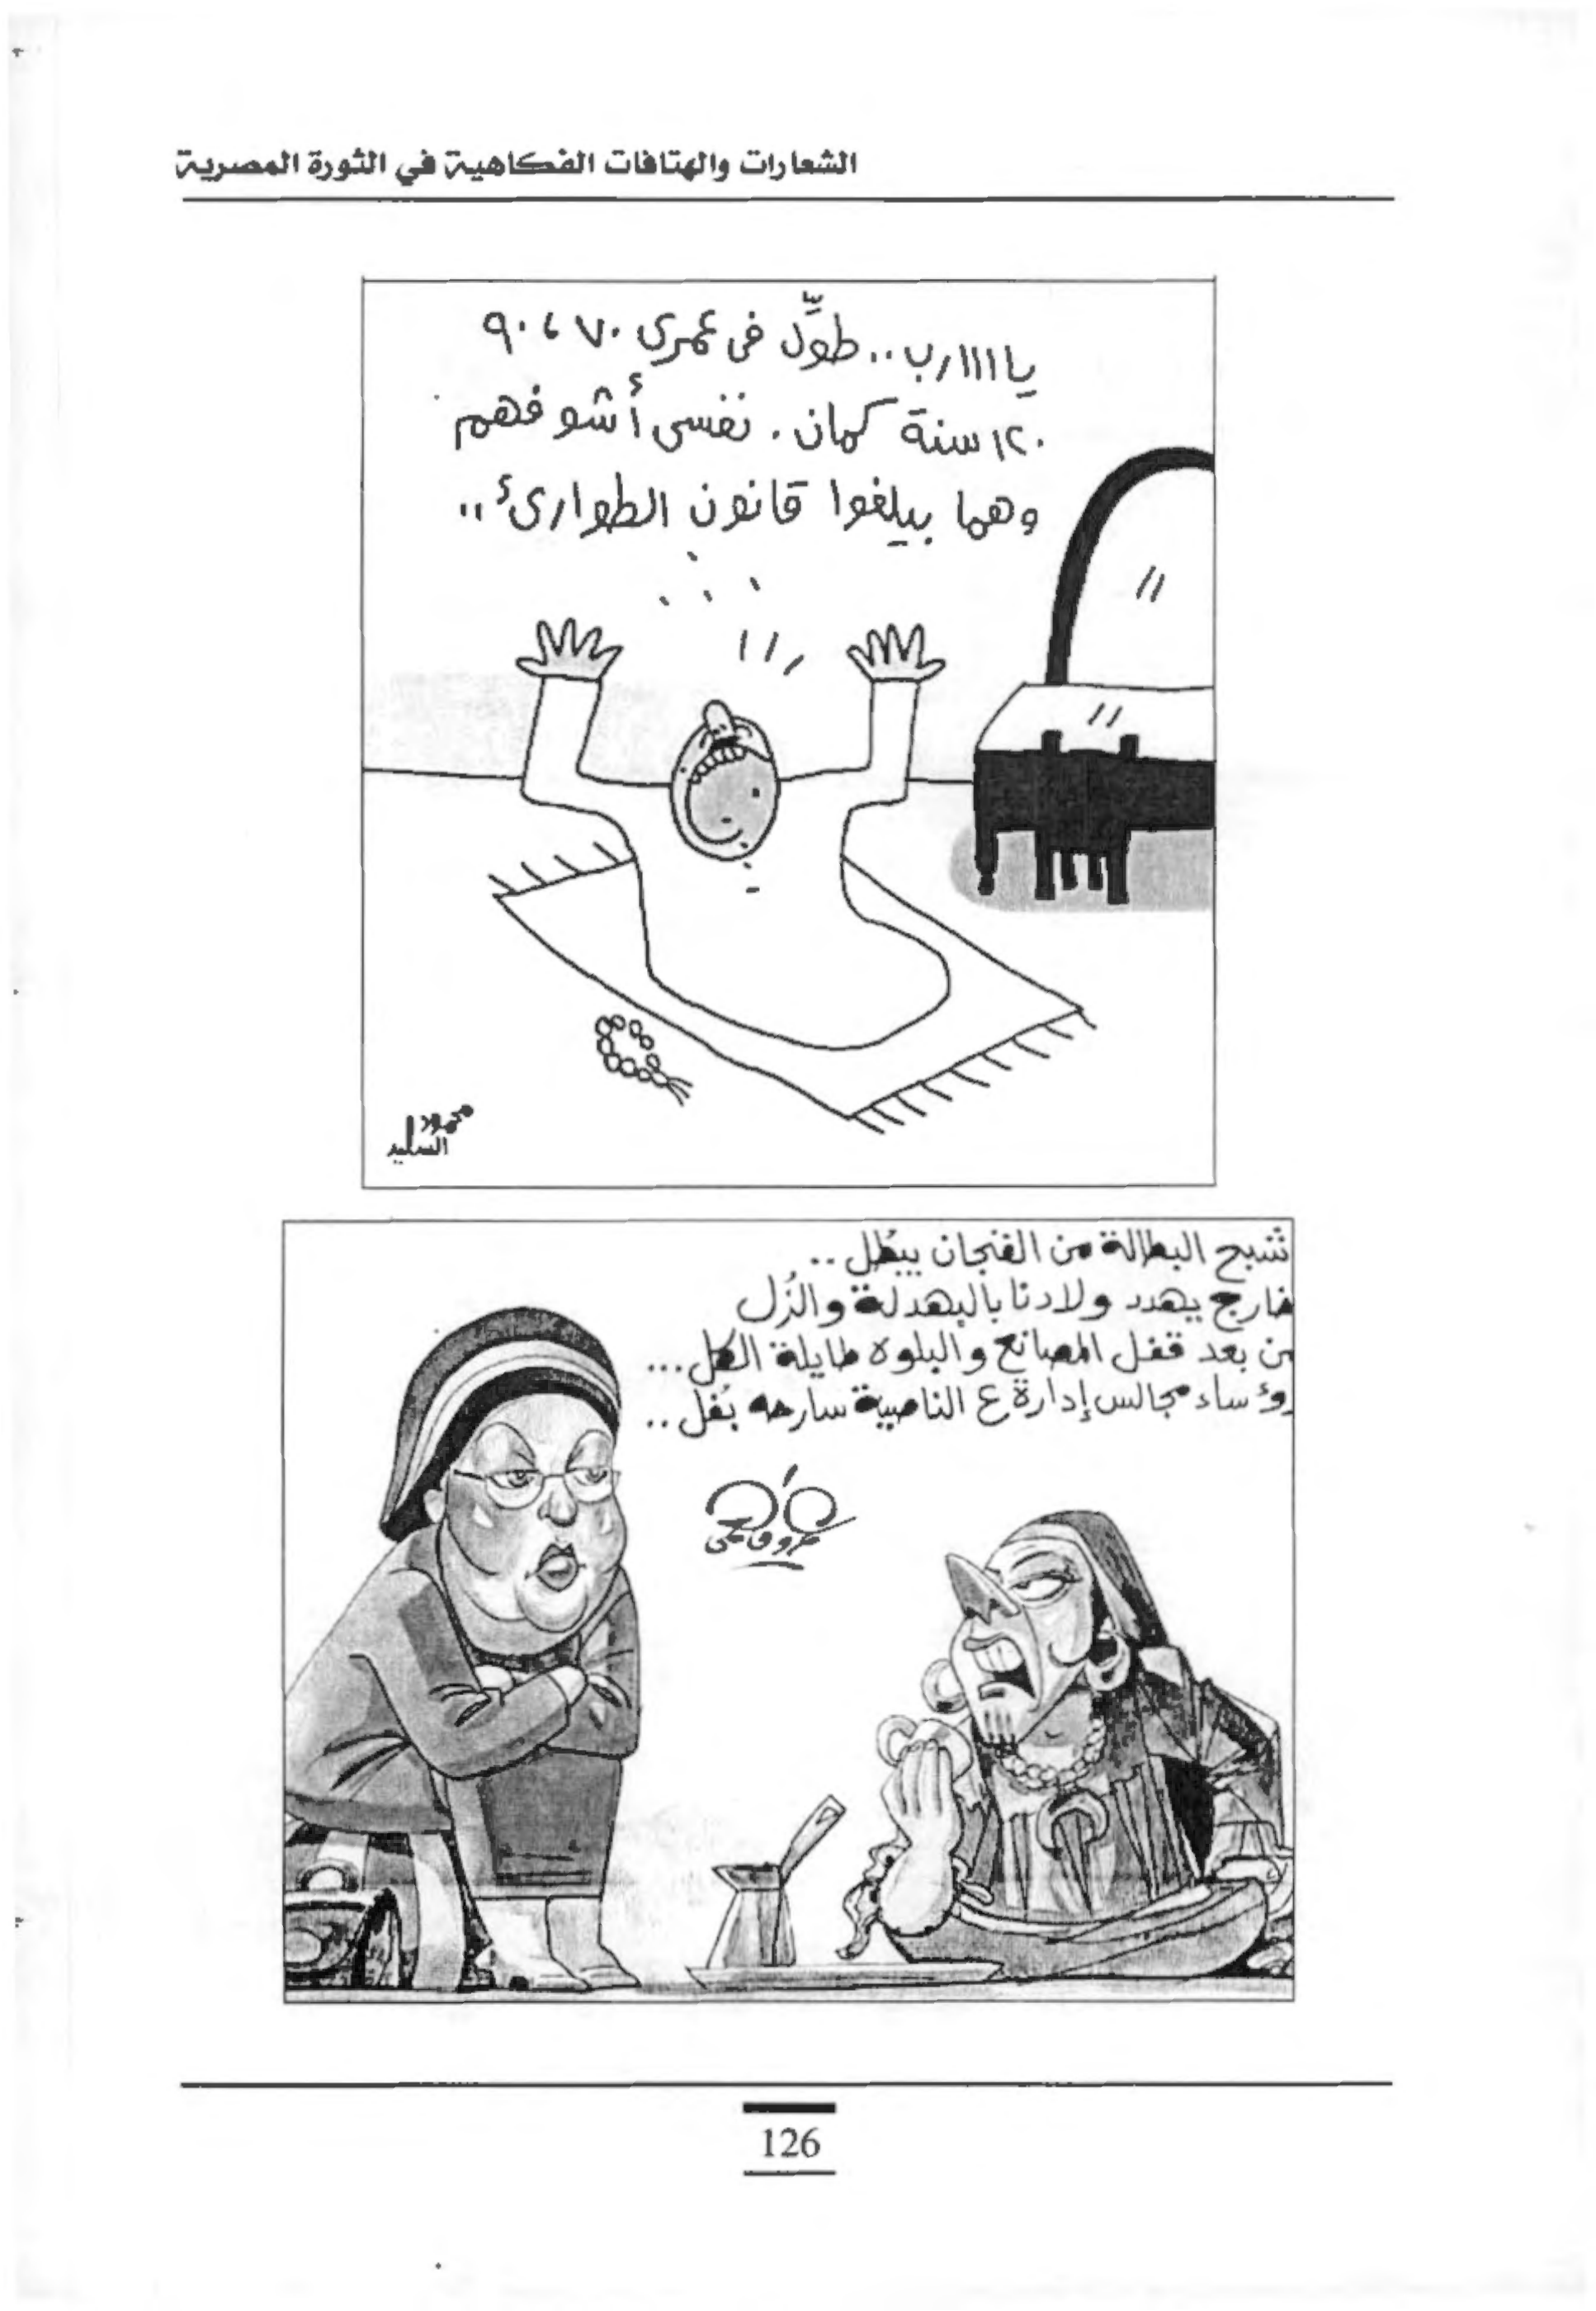 الشعارات والهتافات الفكاهية في الثورة المصرية
يا ااارب.. طوِّل فى عمرى ٧٠ ، ٩٠
١٢٠ سنة كمان. نفسى أشوفهم
وهما بيلغوا قانون الطوارئ..
محمود السيد
شبح البطالة من الفنجان بيطُل..
خارج يهدد ولادنا بالبهدلة والزُل
من بعد قفل المصانع والبلوه طايلة الكل...
رؤساء مجالس إدارة ع الناصية سارحه بفُل..
126